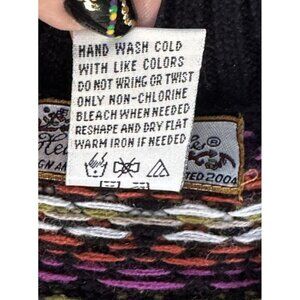 HAND WASH COLD
WITH LIKE COLORS
DO NOT WRING OR TWIST
ONLY NON-CHLORINE
BLEACH WHEN NEEDED
RESHAPE AND DRY FLAT
WARM IRON IF NEEDED
2004